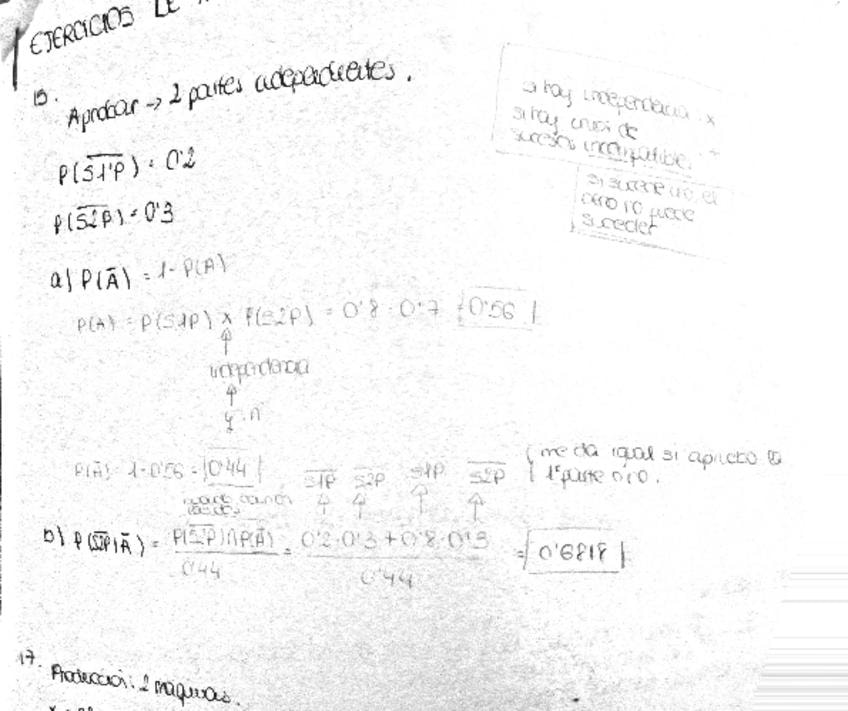 EJERCICIOS DE
15.
Aprobar → 2 partes independientes.
si hay independencia x
si hay unión de +
sucesos incompatibles.
si sucede uno el
otro no puede
suceder
P(S1ºP) = 0'2
P(S2P) = 0'3
a) P(Ā) = 1 - P(A)
P(A) = P(S1P) x P(S2P) = 0'8 · 0'7 = 0'56
↑
independencia
↑
y · ∩
P(Ā) = 1 - 0'56 = 0'44
S1P S2P S1P S2P
me da igual si apruebo la
1ª parte o no.
b) P(S2P|Ā) = P(S2P)∩P(Ā) / 0'44 = 0'2·0'3 + 0'8·0'3 / 0'44 = 0'6818
17.
Producción: 2 máquinas.